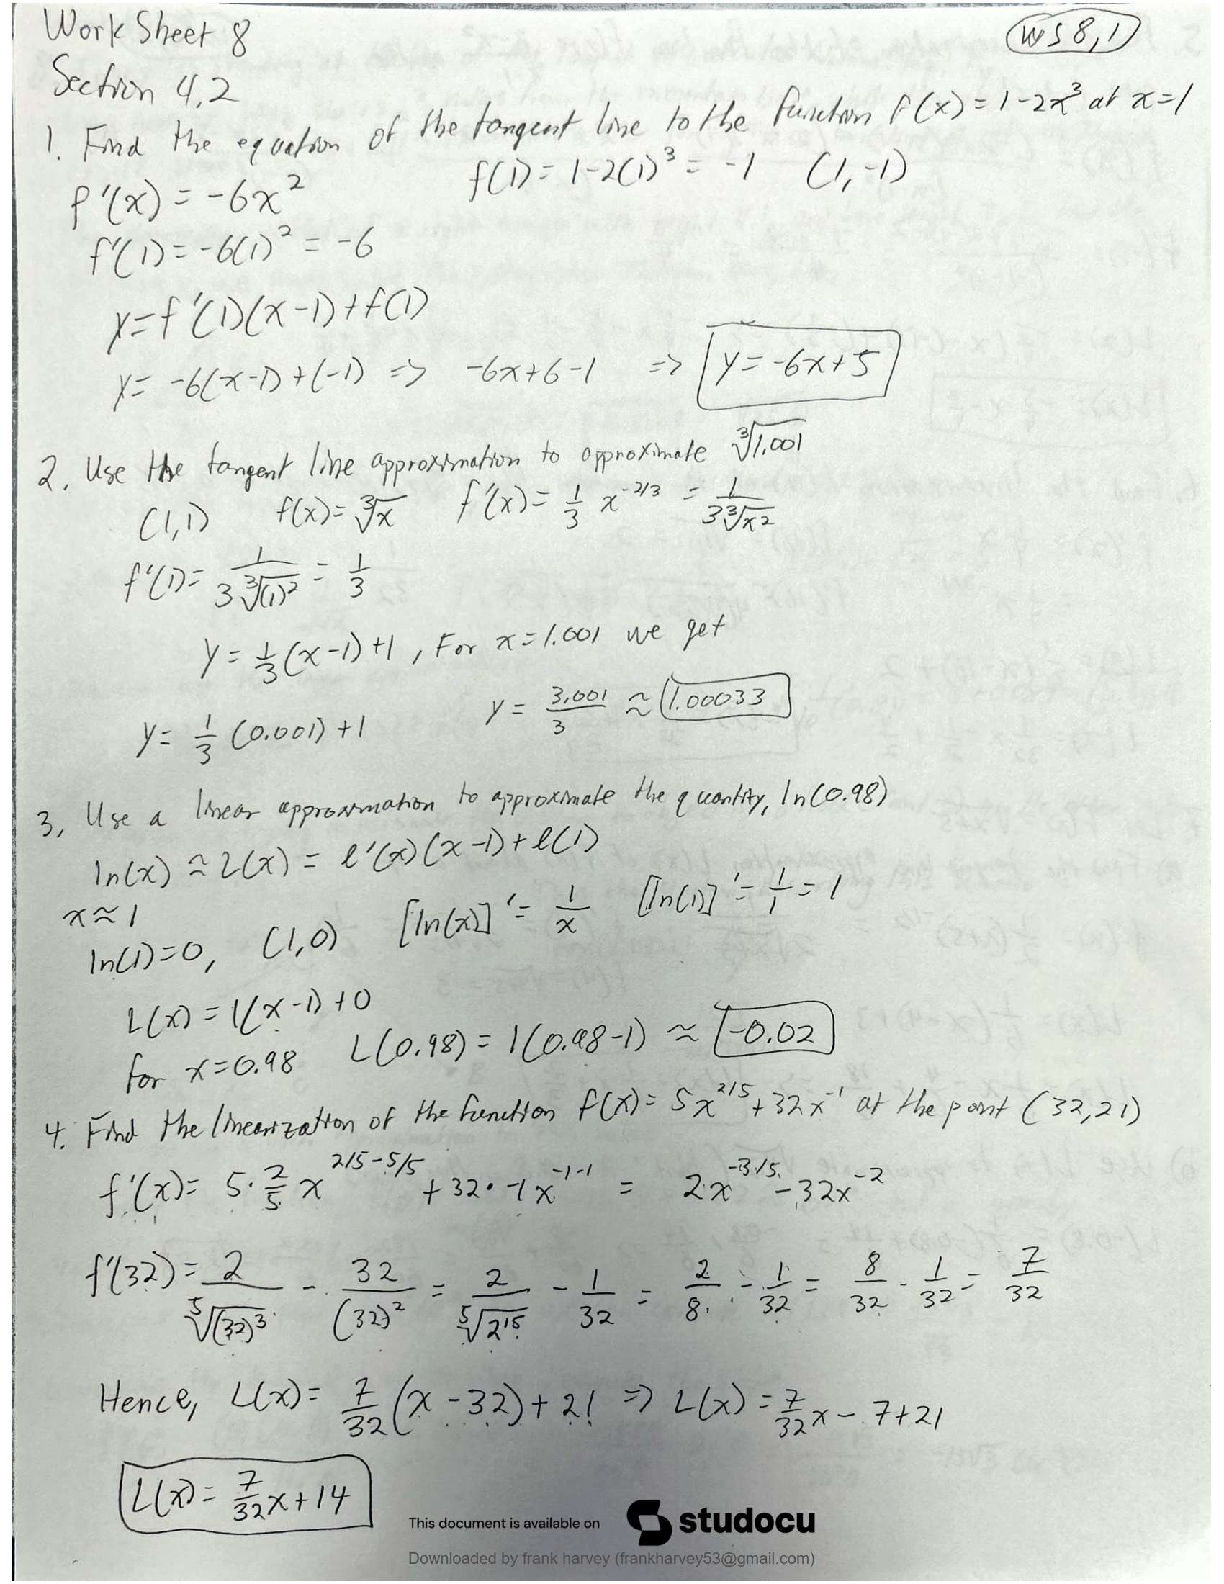 Work Sheet 8
WS 8,1
Section 4.2
1. Find the equation of the tangent line to the function f(x) = 1-2x³ at x=1
f'(x) = -6x² f(1) = 1-2(1)³ = -1 (1,-1)
f'(1) = -6(1)² = -6
y = f'(1)(x-1)+f(1)
y = -6(x-1)+(-1) => -6x+6-1 => y = -6x+5
2. Use the tangent line approximation to approximate ∛1.001
(1,1) f(x) = ∛x f'(x) = 1/3 x^(-2/3) = 1/(3∛x²)
f'(1) = 1/(3∛(1)²) = 1/3
y = 1/3(x-1)+1, For x = 1.001 we get
y = 1/3 (0.001)+1 y = 3.001/3 ≈ 1.00033
3, Use a linear approximation to approximate the quantity, ln(0.98)
ln(x) ≈ L(x) = l'(x)(x-1)+l(1)
x≈1
ln(1)=0, (1,0) [ln(x)]' = 1/x [ln(1)]' = 1/1 = 1
L(x) = 1(x-1)+0
for x=0.98 L(0.98) = 1(0.98-1) ≈ -0.02
4. Find the linearization of the function f(x) = 5x^(2/5)+32x⁻¹ at the point (32,21)
f'(x) = 5·2/5 x^(2/5-5/5) + 32·-1x^(-1-1) = 2x^(-3/5) - 32x⁻²
f'(32) = 2/⁵√(32)³ - 32/(32)² = 2/⁵√2¹⁵ - 1/32 = 2/8 - 1/32 = 8/32 - 1/32 = 7/32
Hence, L(x) = 7/32(x-32)+21 => L(x) = 7/32x - 7+21
L(x) = 7/32x+14
This document is available on studocu
Downloaded by frank harvey (frankharvey53@gmail.com)